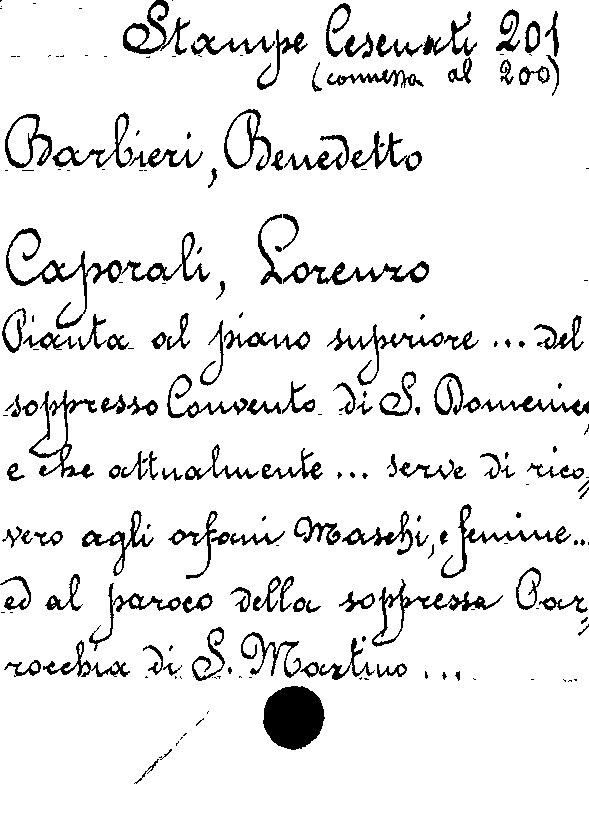 Stampe Cesenati 201
(connessa al 200)
Barbieri, Benedetto
Caporali, Lorenzo
Pianta al piano superiore ... del
soppresso Convento di S. Domenico,
e che attualmente ... serve di rico=
vero agli orfani Maschi, e femine...
ed al paroco della soppressa Par=
rocchia di S. Martino ...